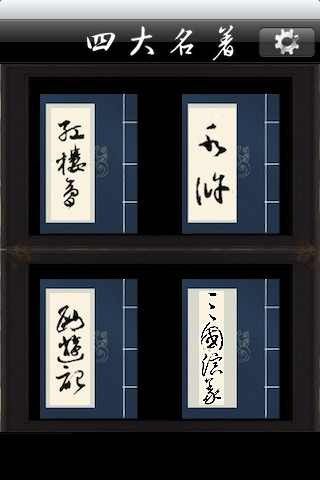 四大名著
红楼梦
水浒
西游记
三國演义